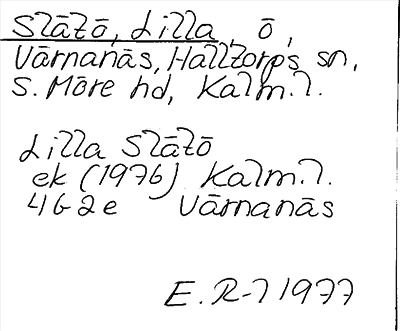 Slätö, Lilla, ö,
Värnanäs, Halltorps sn,
S. Möre hd, Kalm. l.
Lilla Slätö
ek (1976) Kalm. l.
4G 2e Värnanäs
E. R-l 1977